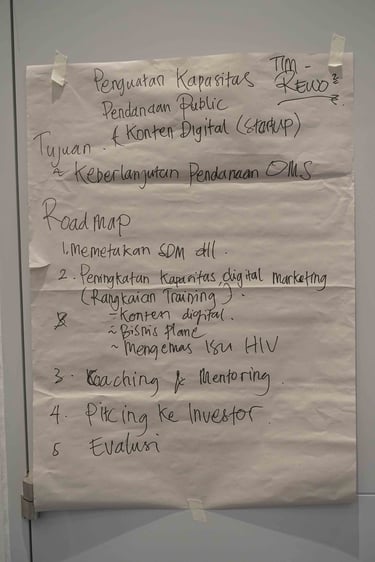 Penguatan Kapasitas
TIM -
REWO
Pendanaan Public
& Konten Digital (StartUP)
Tujuan.
~ Keberlanjutan Pendanaan OMS
Roadmap
1. Memetakan SDM dll.
2. Peningkatan Kapasitas digital marketing
(Rangkaian Training).
~ Konten digital.
~ Bisnis Plane
~ Mengemas Isu HIV
3. Coaching & Mentoring.
4. Pitcing ke Investor.
5 Evalusi